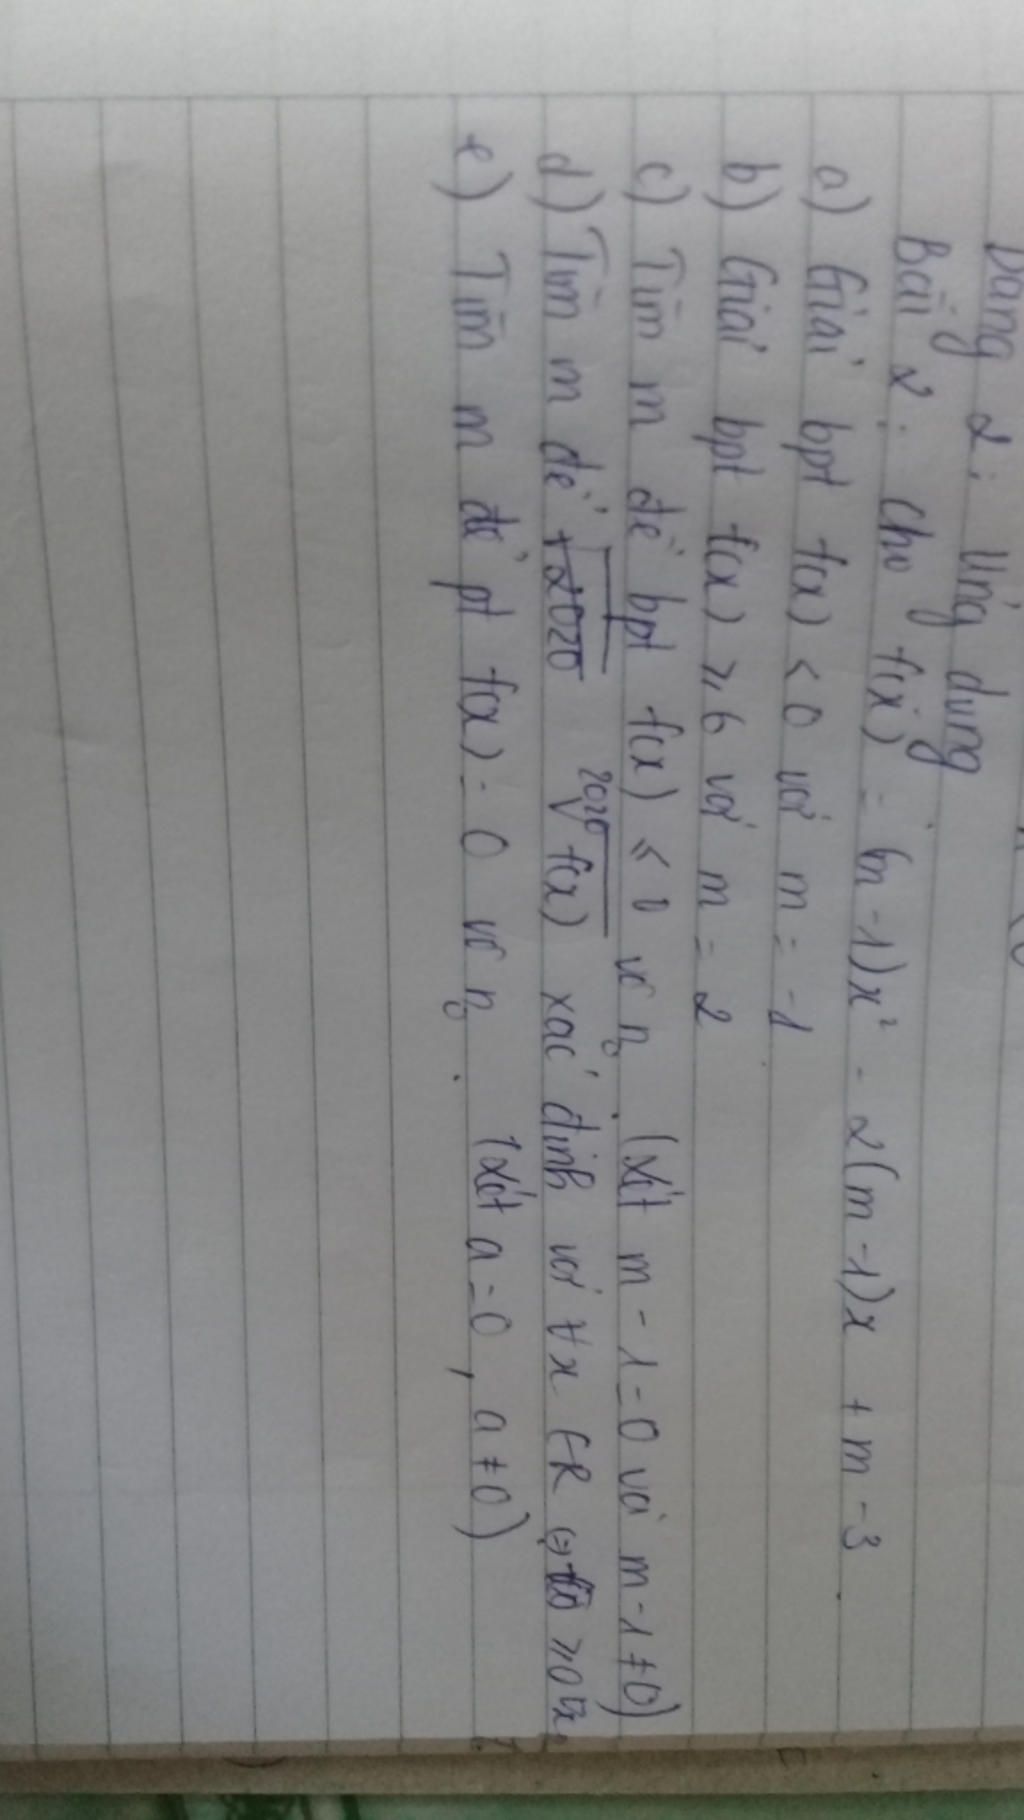 Dạng 2: Ứng dụng
Bài 2: Cho f(x) = (m-1)x² - 2(m-1)x + m-3.
a) Giải bpt f(x) < 0 với m = -1
b) Giải bpt f(x) ≥ 6 với m = 2
c) Tìm m để bpt f(x) ≤ 0 vô n₀. (xét m-1=0 và m-1≠0)
d) Tìm m để ²⁰²⁰√f(x) xác định với ∀x ∈R ⇔ f(x) ≥0 ∀x
e) Tìm m để pt f(x) = 0 vô n₀. (xét a=0, a≠0)